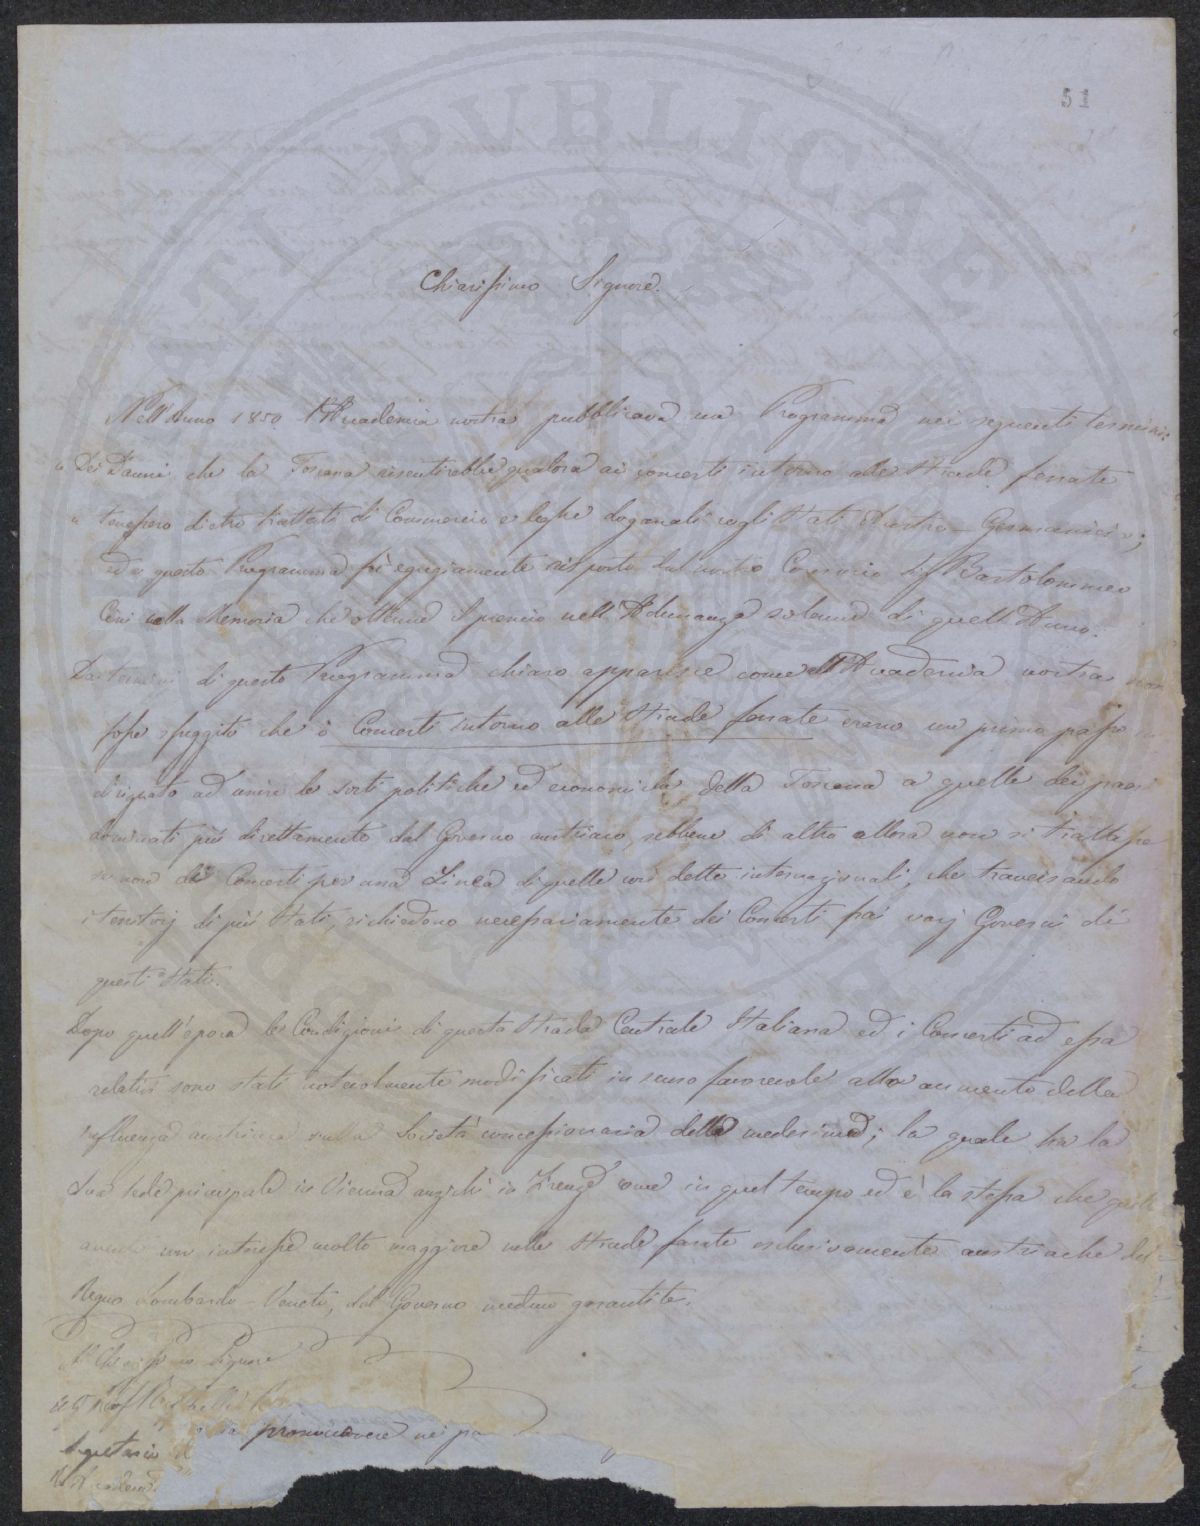 51
Chiarissimo Signore.
Nell'Anno 1850 l'Accademia nostra pubblicava un Programma nei seguenti termini:
" Dei Danni che la Toscana risentirebbe qualora ai concerti intorno alle strade ferrate
" tenessero dietro trattati di Commercio e leghe doganali cogli Stati Austro-Germanici";
ed a questo Programma fù egregiamente risposto dal nostro Consocio Sig. Bartolommeo
Cini nella Memoria che ottenne il premio nell'Adunanza solenne di quell'Anno.
Dai termini di questo Programma chiaro apparisce come all'Accademia nostra non
fosse sfuggito che i Concerti intorno alle strade ferrate erano un primo passo
designato ad unire le sorti politiche ed economiche della Toscana a quelle dei paesi
dominati più direttamente dal Governo austriaco, sebbene di altro allora non si trattasse
se non dei Concerti per una Linea di quelle così dette internazionali, che traversando
i territorj di più Stati, richiedono necessariamente dei Concerti fra i varj Governi di
questi Stati.
Dopo quell'epoca le Condizioni di questa strada Centrale Italiana ed i Concerti ad essa
relativi sono stati notevolmente modificati in senso favorevole allo aumento della
influenza austriaca sulla Società concessionaria della medesima; la quale ha la
Sua sede principale in Vienna anzichè in Firenze come in quel tempo ed è la stessa che
avente un interesse molto maggiore nelle strade ferrate esclusivamente austriache del
Regno Lombardo-Veneto, dal Governo medesimo garantite.
Al Chiarissimo Signore
promuovere nei pa
Segretario